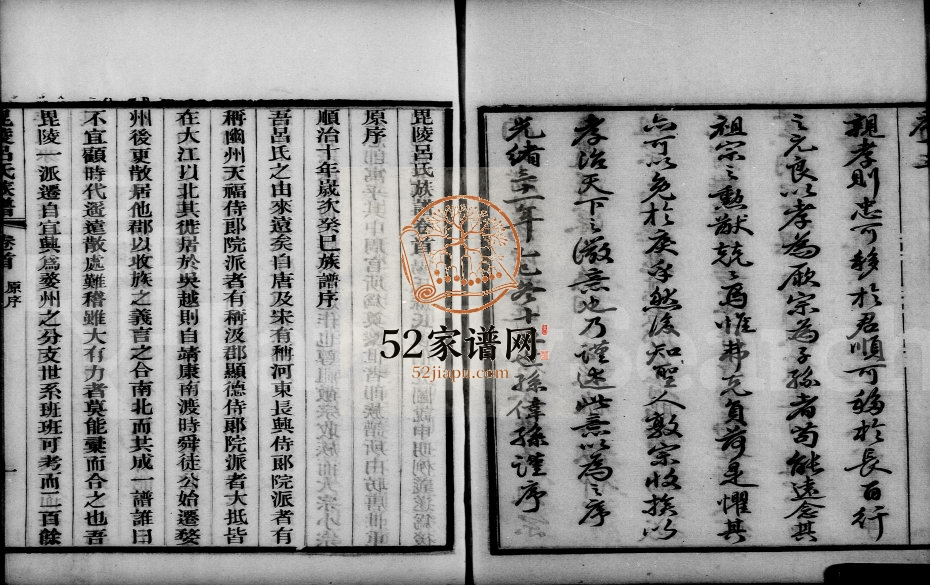 親孝則忠可移於君順可移於長百行
之元良以孝為厥宗為子孫者苟能遠念其
祖宗之勲猷兢兢焉惟弗克負荷是懼其
亦可以免於戾乎然後知聖人敦宗收族以
孝治天下之微意也乃謹述此意以為之序
光緒三年 孫偉孫謹序
毘陵呂氏族譜卷首
原序
順治十年歲次癸巳族譜序
吾呂氏之由來遠矣自唐及宋有稱河東長興侍郞院派者有
稱幽州天福侍郞院派者有稱汲郡顯德侍郞院派者大抵皆
在大江以北其徙居於吳越則自靖康南渡時舜徒公始遷婺
州後更散居他郡以收族之義言之合南北而共成一譜誰曰
不宜顧時代遥遠散處難稽雖大有力者莫能彙而合之也吾
毘陵一派遷自宜興爲婺州之分支世系班班可考而二百餘
毘陵呂氏族譜 卷首 原序 一
52家谱网
52jiapu.com